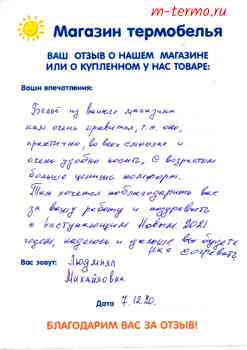 m-termo.ru
Магазин термобелья
ВАШ ОТЗЫВ О НАШЕМ МАГАЗИНЕ
ИЛИ О КУПЛЕННОМ У НАС ТОВАРЕ:
Ваши впечатления:
Бельё из вашего магазина
нам очень нравится, т.к. оно,
практично, во всех смыслах и
очень удобно носить, с возрастом
больше ценишь комфорт.
Так хочется поблагодарить вас
за вашу работу и поздравить
с наступающим Новым 2021
годом, надеюсь и дальше вы будете
нас согревать
Вас зовут: Людмила
Михайловна
Дата 7.12.20.
БЛАГОДАРИМ ВАС ЗА ОТЗЫВ!